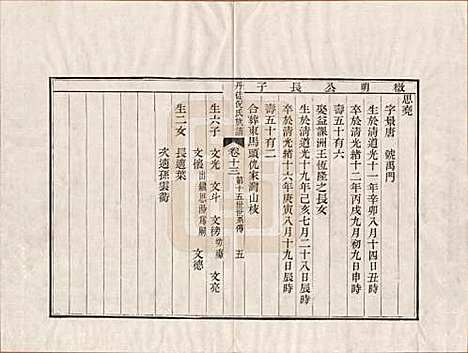 檢明公長子
思堯
字景唐 號禹門
生於清道光十一年辛卯八月十四日辰時
卒於清光緒十二年丙戌九月初九日申時
壽五十有六
娶益課洲王恆隆之長女
生於清道光十九年己亥七月二十八日辰時
卒於清光緒十六年庚寅八月十九日辰時
壽五十有二
合葬東馬頭仇家灣山枝
卷十三 第十五世世系傳 五
生六子 文光 文斗 文榜幼殤 文亮
文懷出繼思 爲嗣 文德
生二女 長適葉
次適孫雲藹